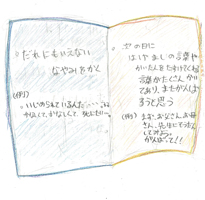 ・だれにもいえない
なやみをかく
(例)
いじめられているんだ……
次の日に
はげましの言葉や
かいけつをたすけてくれる
言葉がたくさん
であり、またがんば
ろうと思う
(例)まず、お父さん、お母
さん、先生にそうだん
してみよう。
がんばって!!